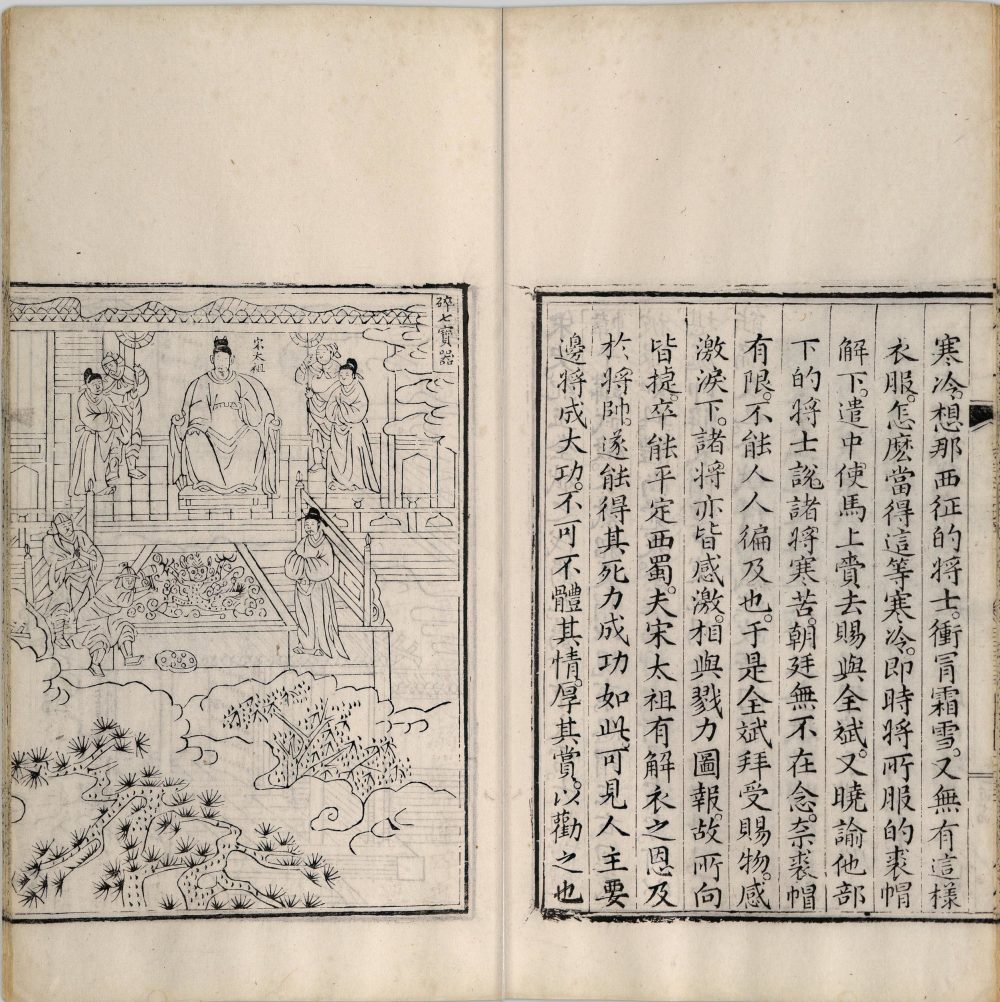 寒冷。想那西征的將士。衝冐霜雪。又無有這樣
衣服。怎麽當得這等寒冷。即時將所服的裘帽
解下。遣中使馬上賫去賜與全斌。又曉諭他部
下的將士說諸將寒苦。朝廷無不在念。柰裘帽
有限。不能人人徧及也。于是全斌拜受賜物。感
激淚下。諸將亦皆感激。相與戮力圖報。故所向
皆捷。卒能平定西蜀。夫宋太祖有解衣之恩及
於將帥。遂能得其死力成功如此。可見人主要
邊將成大功。不可不體其情。厚其賞。以勸之也
碎七寶器
宋太祖